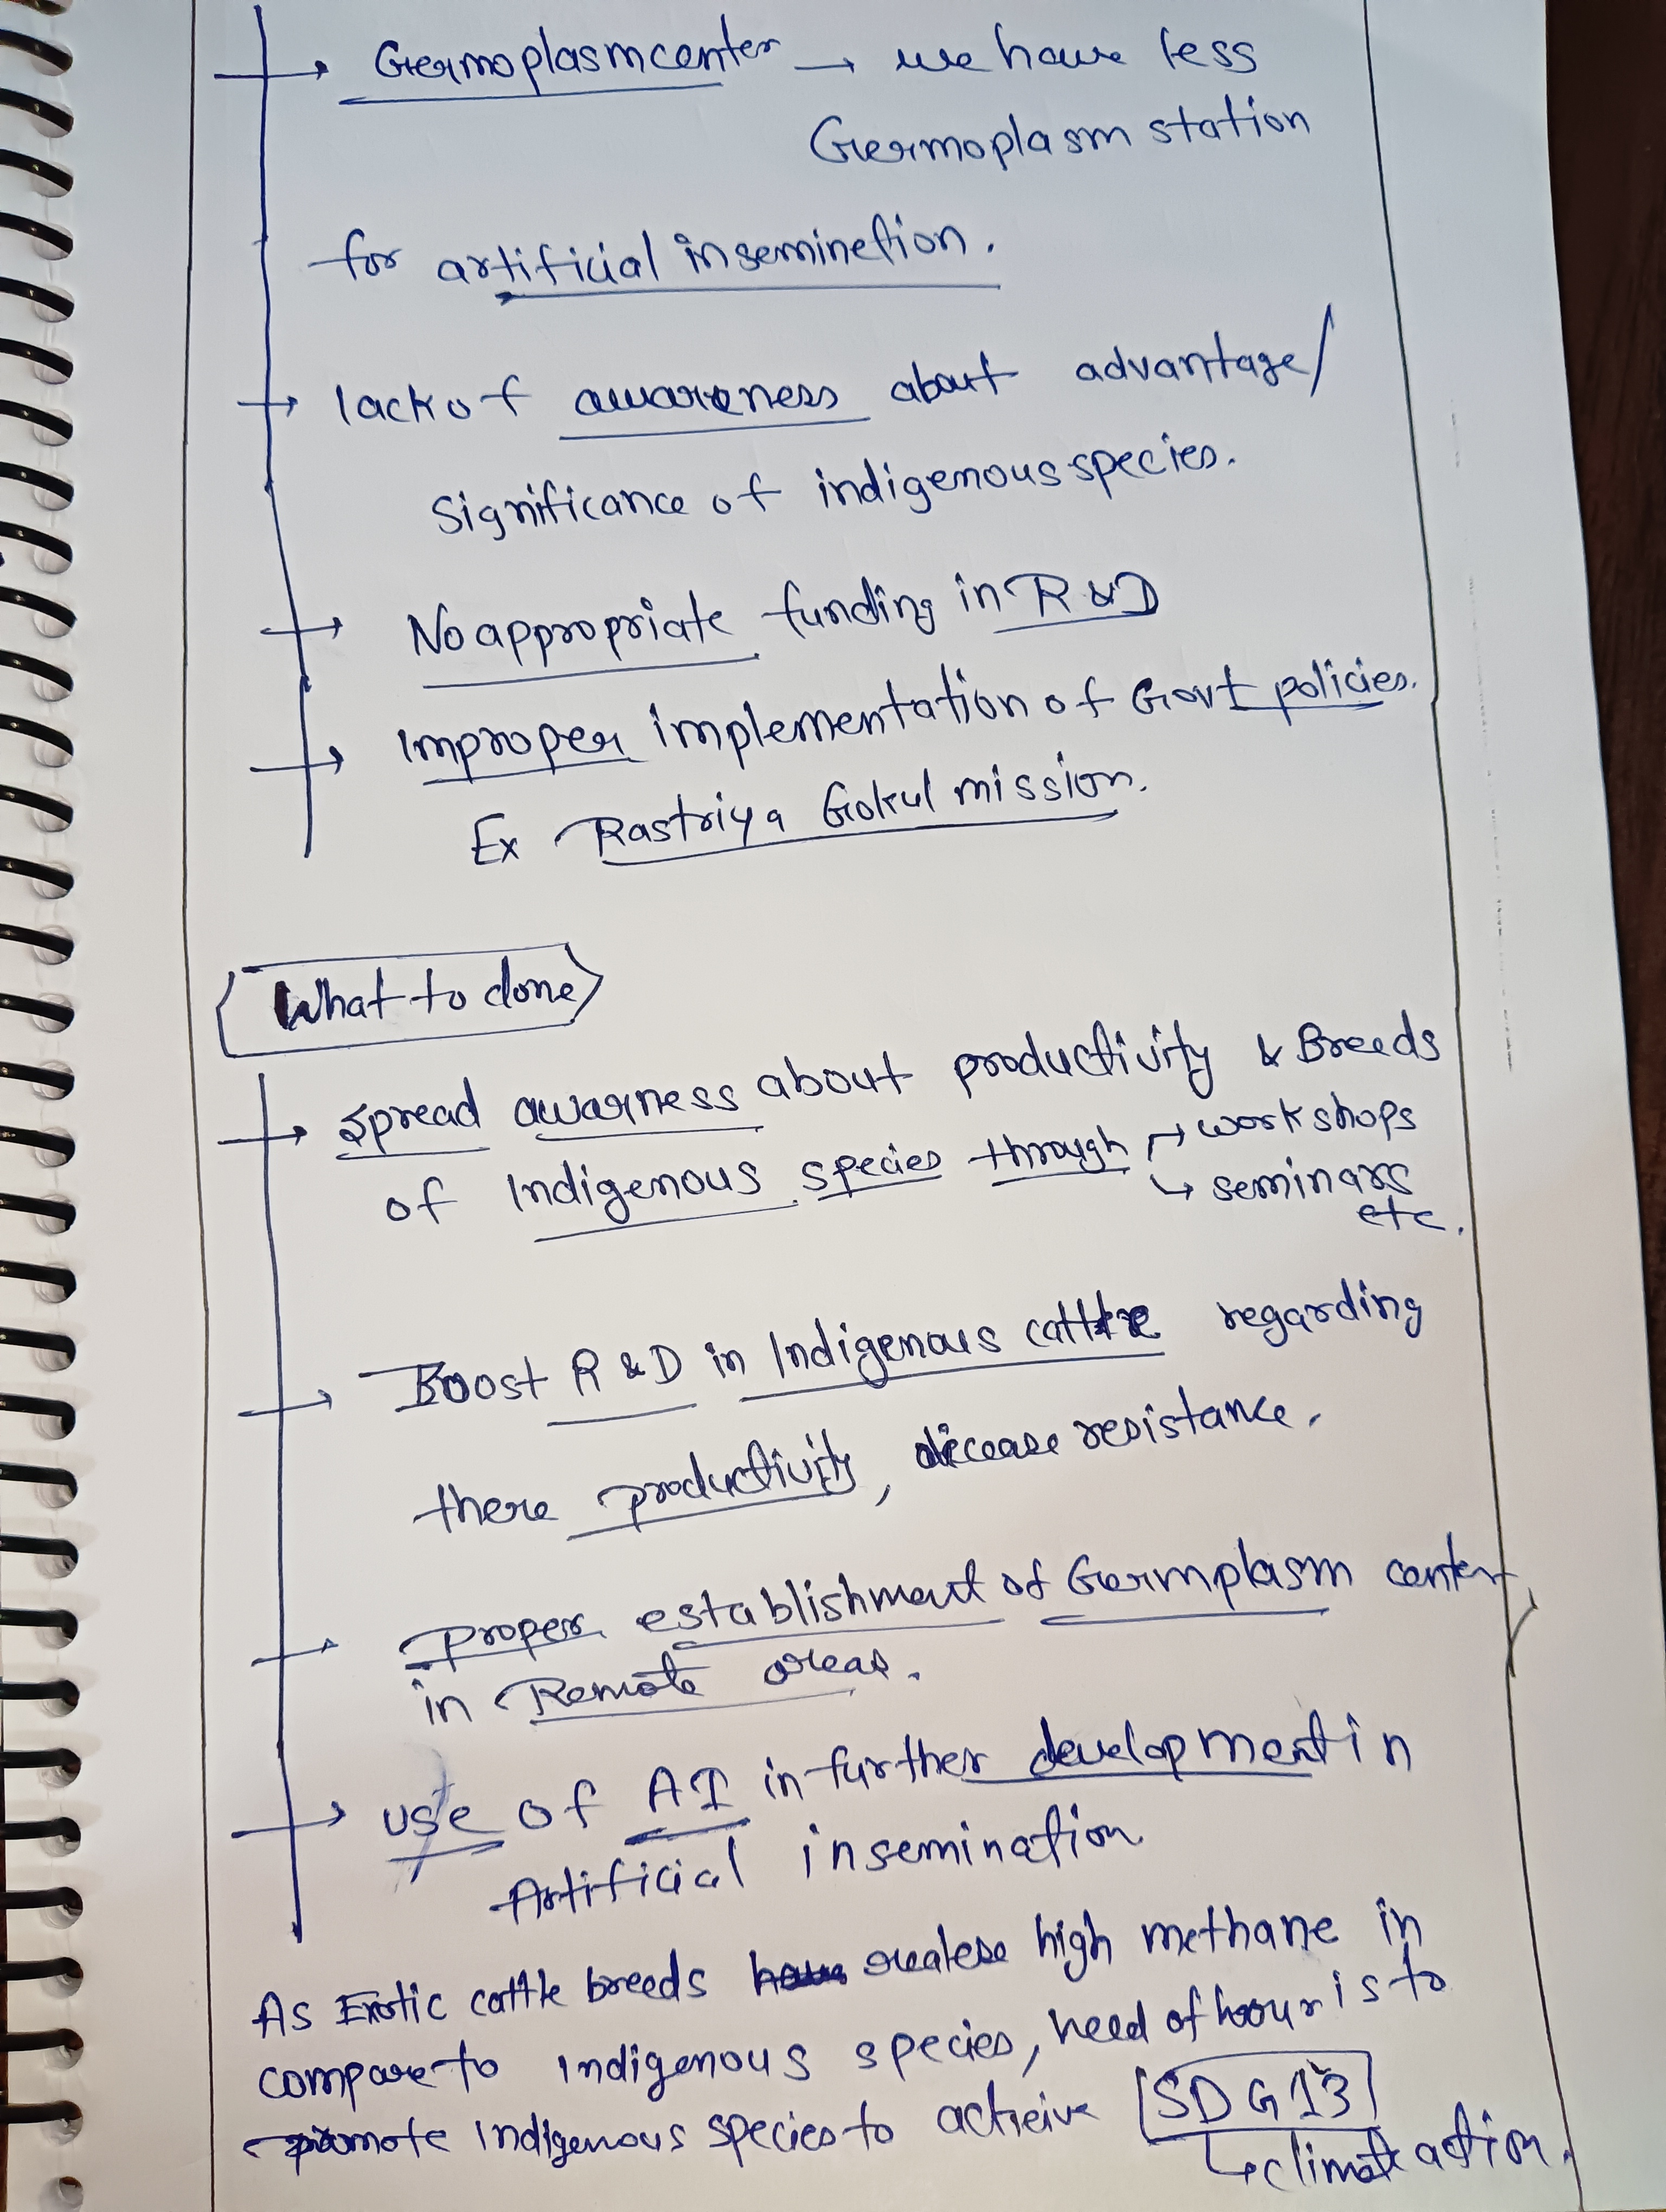 → Germoplasm center → we have less
Germoplasm station
for artificial inseminetion.
→ lack of awareness about advantage/
Significance of indigenous species.
→ No appropriate funding in R & D
→ Improper implementation of Govt policies.
Ex Rastriya Gokul mission.
What to done
→ Spread awarness about productivity & Breeds
of Indigenous species through → workshops
↳ seminars
etc.
→ Boost R & D in Indigenous cattle regarding
there productivity, dicease resistance.
→ Proper establishment of Germplasm center,
in Remote areas.
→ use of AI in further development in
Artificial insemination
As Exotic cattle breeds have high methane in
compare to indigenous species, need of hour is to
promote Indigenous species to acheive SDG 13
↳ climate action.